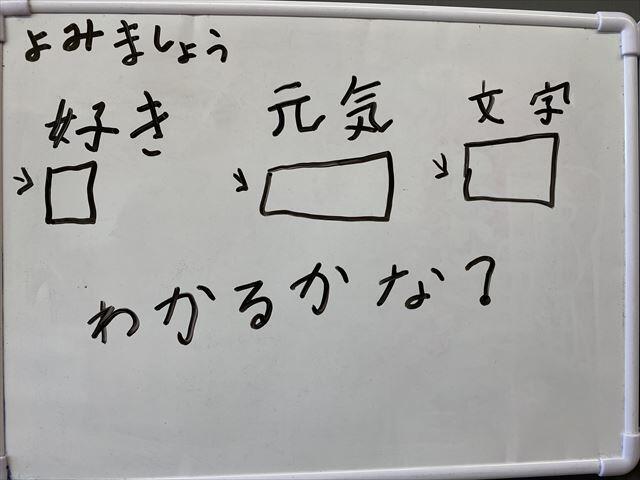 よみましょう
好き 元気 文字
わかるかな?